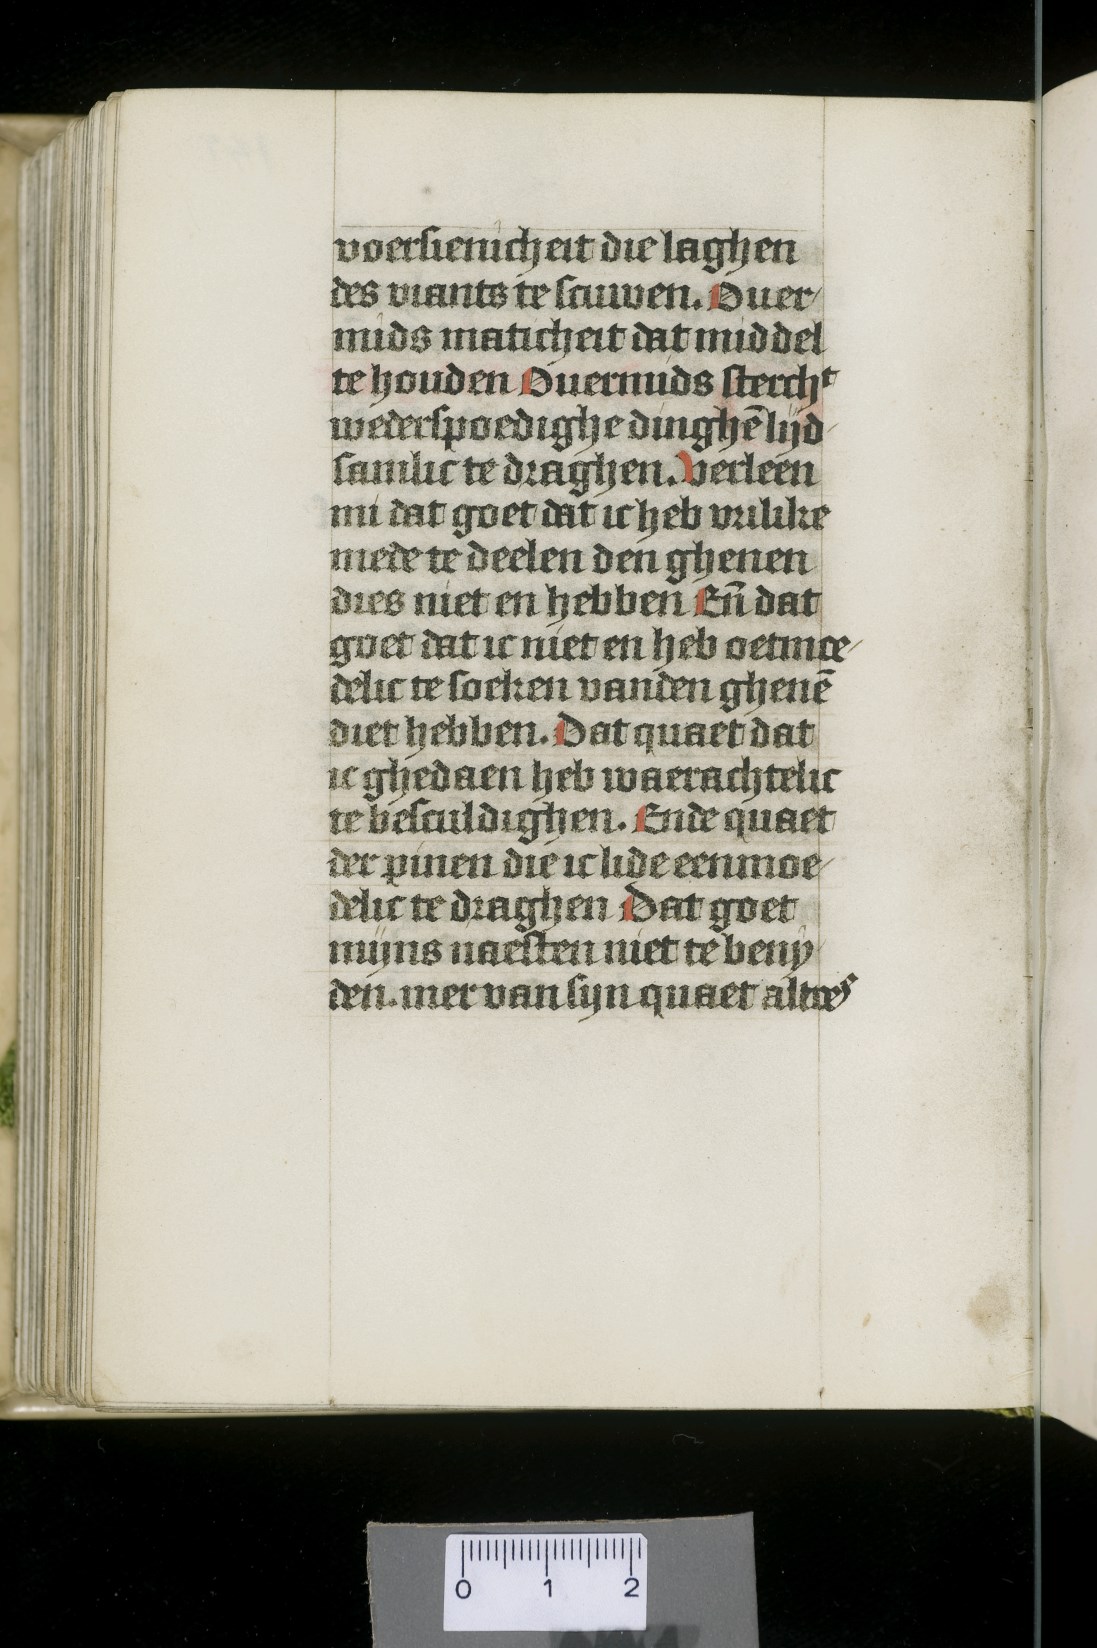 voersienicheit die laghen
des viants te scuwen. Ouer/
mids maticheit dat middel
te houden Ouermids sterchᵗ
wederspoedighe dinghē lijd/
samlic te draghen. Verleen
mi dat goet dat ic heb vrilike
mede te deelen den ghenen
dies niet en hebben Eñ dat
goet dat ic niet en heb oetmoe/
delic te soeken vanden ghenē
diet hebben. Dat quaet dat
ic ghedaen heb waerachtelic
te besculdighen. Ende quaet
der pinen die ic lide eenmoe/
delic te draghen Dat goet
mijns naesten niet te beny/
den. mer van sijn quaet altoes
0 1 2